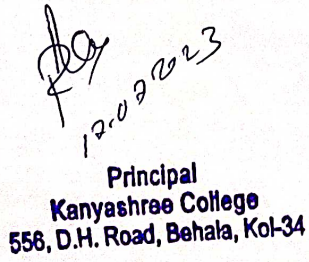 17.07.2023
Principal
Kanyashree College
556, D.H. Road, Behala, Kol-34